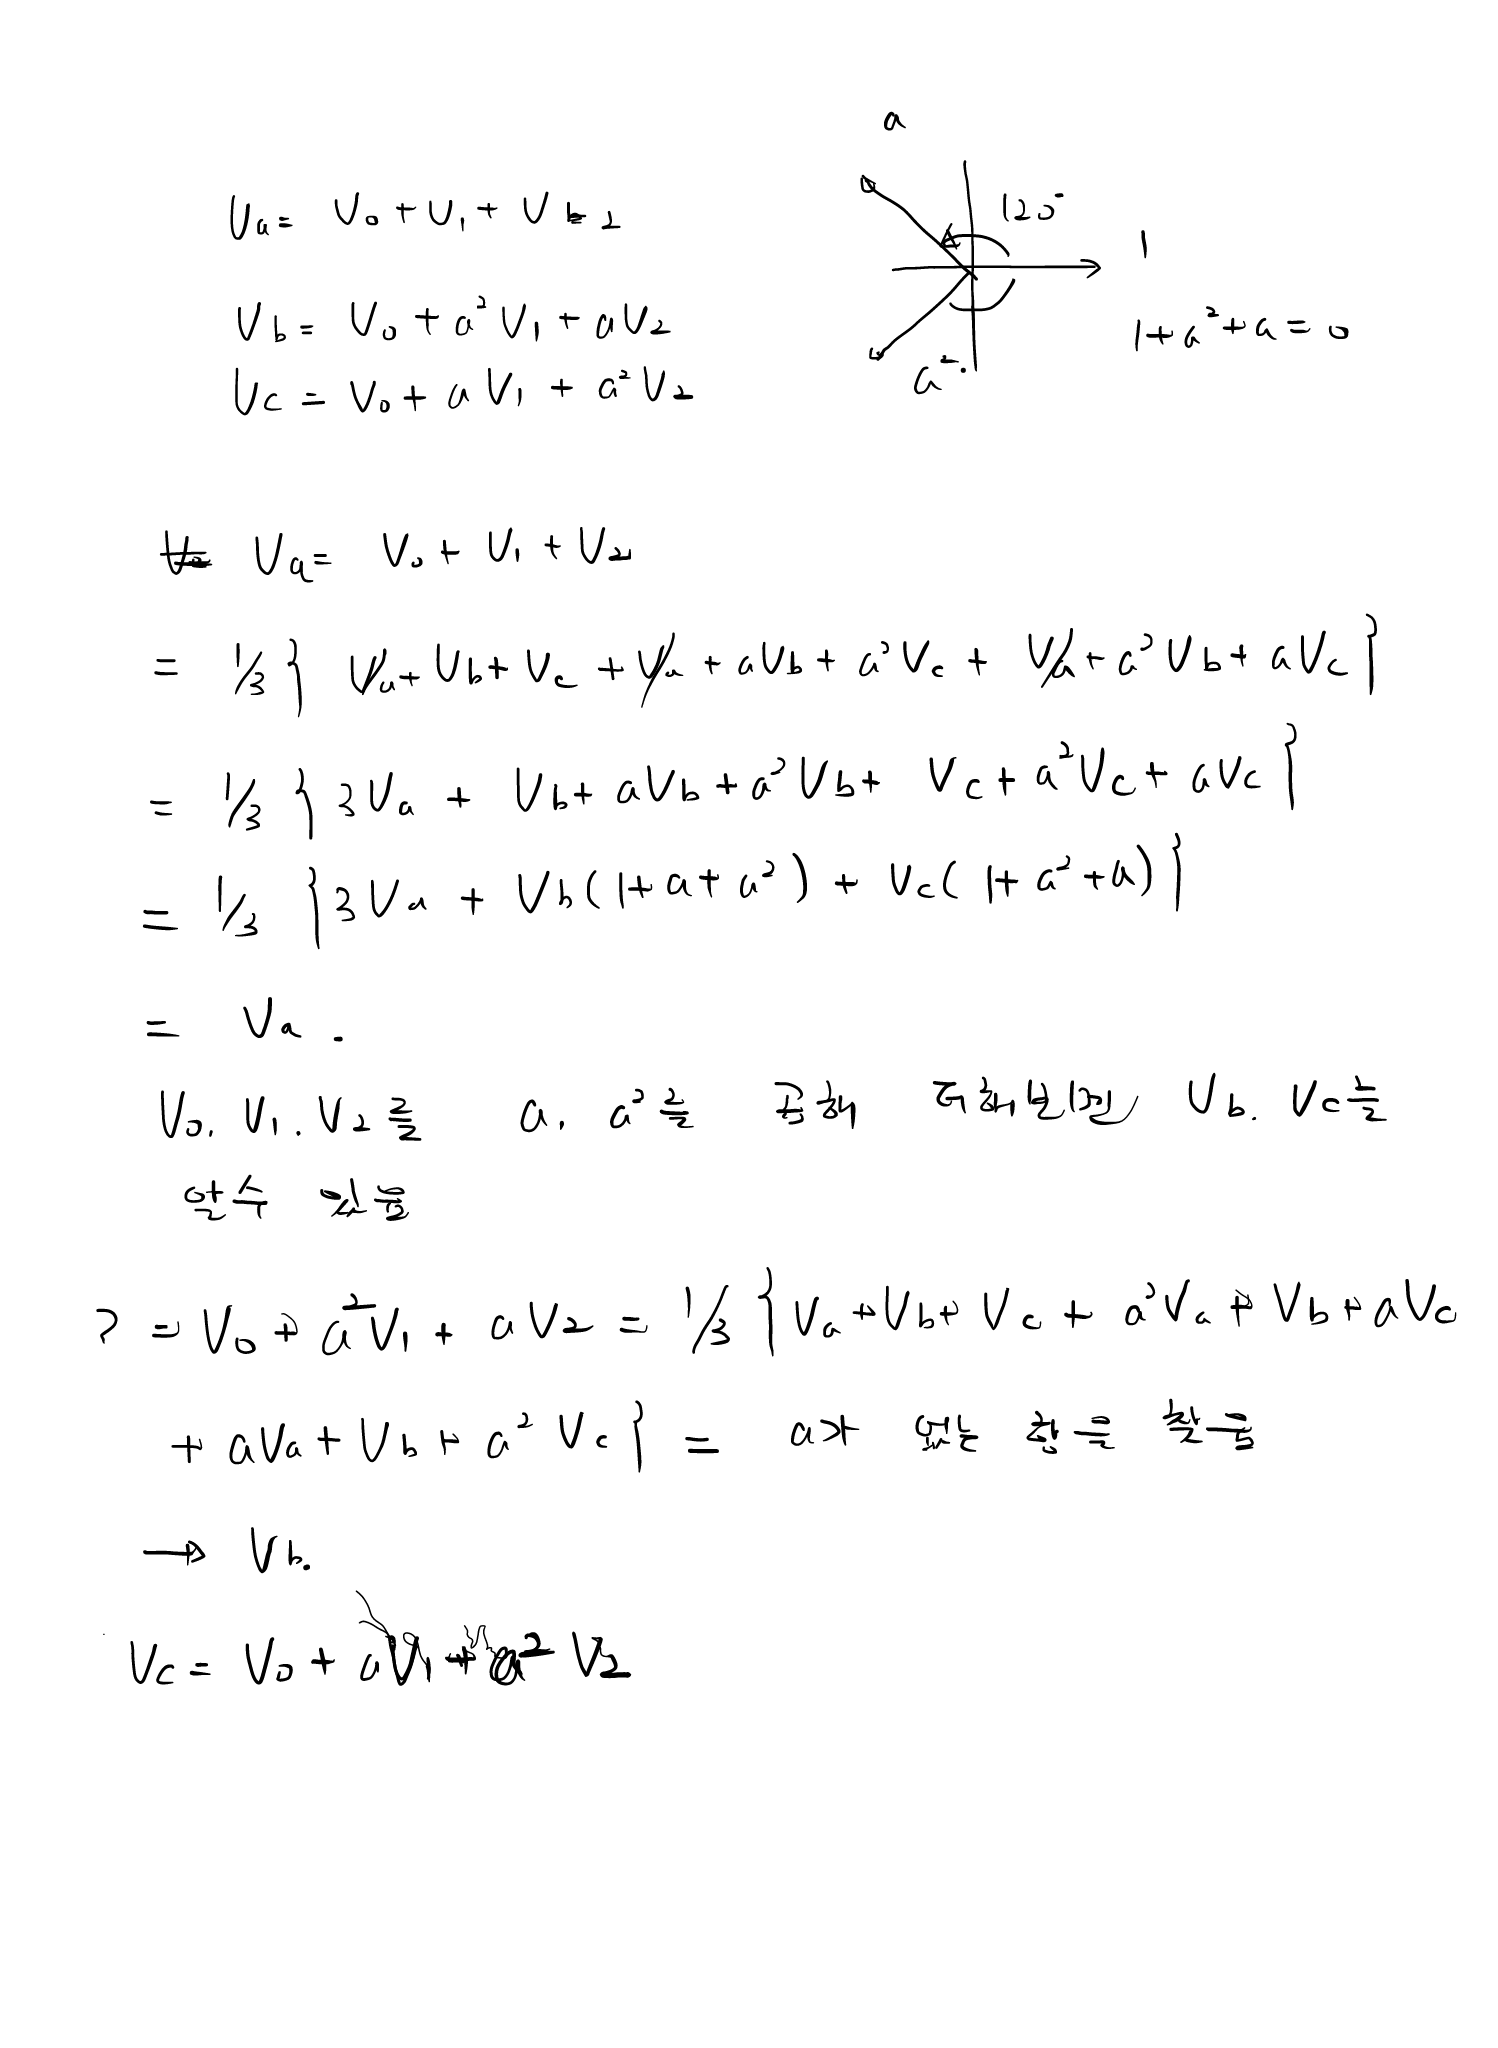 a
120°
Va = V₀ + V₁ + V₂
1
Vb = V₀ + a² V₁ + a V₂
1 + a² + a = 0
Vc = V₀ + a V₁ + a² V₂
a²
Va = V₀ + V₁ + V₂
= 1/3 { Va + Vb + Vc + Va + aVb + a² Vc + Va + a² Vb + aVc }
= 1/3 { 3Va + Vb + aVb + a² Vb + Vc + a² Vc + aVc }
= 1/3 { 3Va + Vb ( 1 + a + a² ) + Vc ( 1 + a² + a ) }
= Va .
V₀. V₁. V₂를 a, a²을 곱해 더해보면 Vb. Vc를
알수 있음
? = V₀ + a² V₁ + a V₂ = 1/3 { Va + Vb + Vc + a² Va + Vb + aVc
+ aVa + Vb + a² Vc } = a가 없는 항을 찾음
→ Vb.
Vc = V₀ + a V₁ + a² V₂